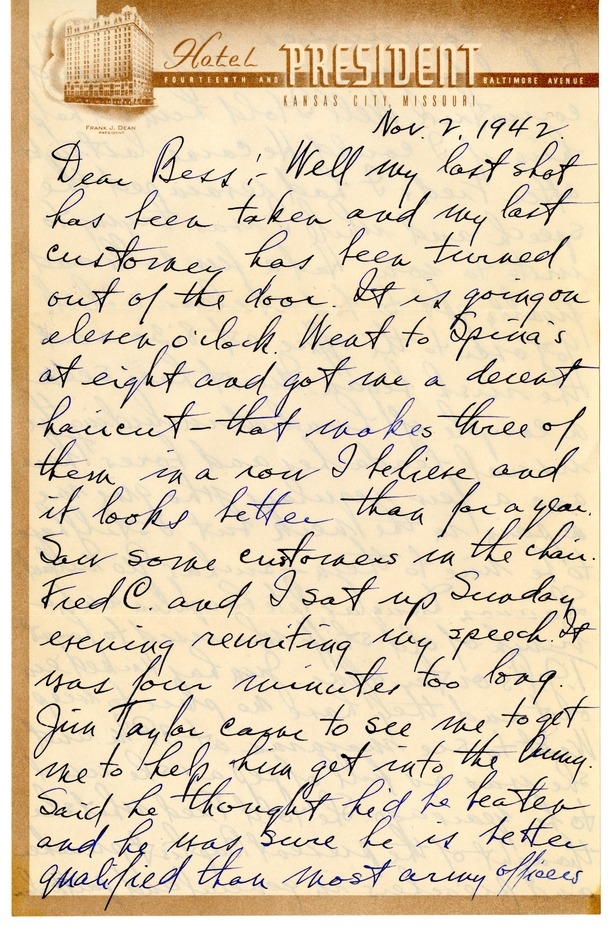 Hotel PRESIDENT
FOURTEENTH AND BALTIMORE AVENUE
KANSAS CITY, MISSOURI
FRANK J. DEAN
PRESIDENT
Nov. 2, 1942.
Dear Bess:- Well my last shot
has been taken and my last
customer has been turned
out of the door. It is going on
eleven o'clock. Went to Spina's
at eight and got me a decent
haircut - that makes three of
them in a row I believe and
it looks better than for a year.
Saw some customers in the chair.
Fred C. and I sat up Sunday
evening rewriting my speech. It
was four minutes too long.
Jim Taylor came to see me to get
me to help him get into the Army.
Said he thought he'd be beaten
and he was sure he is better
qualified than most army officers